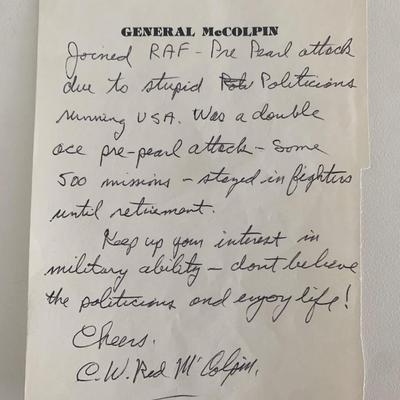 GENERAL McCOLPIN
Joined RAF - Pre Pearl attack
due to stupid Politicians
running USA. Was a double
ace pre-pearl attack - Some
500 missions - stayed in fighters
until retirement.
Keep up your interest in
military ability - dont believe
the politicians and enjoy life!
Cheers.
C.W. Red McColpin.